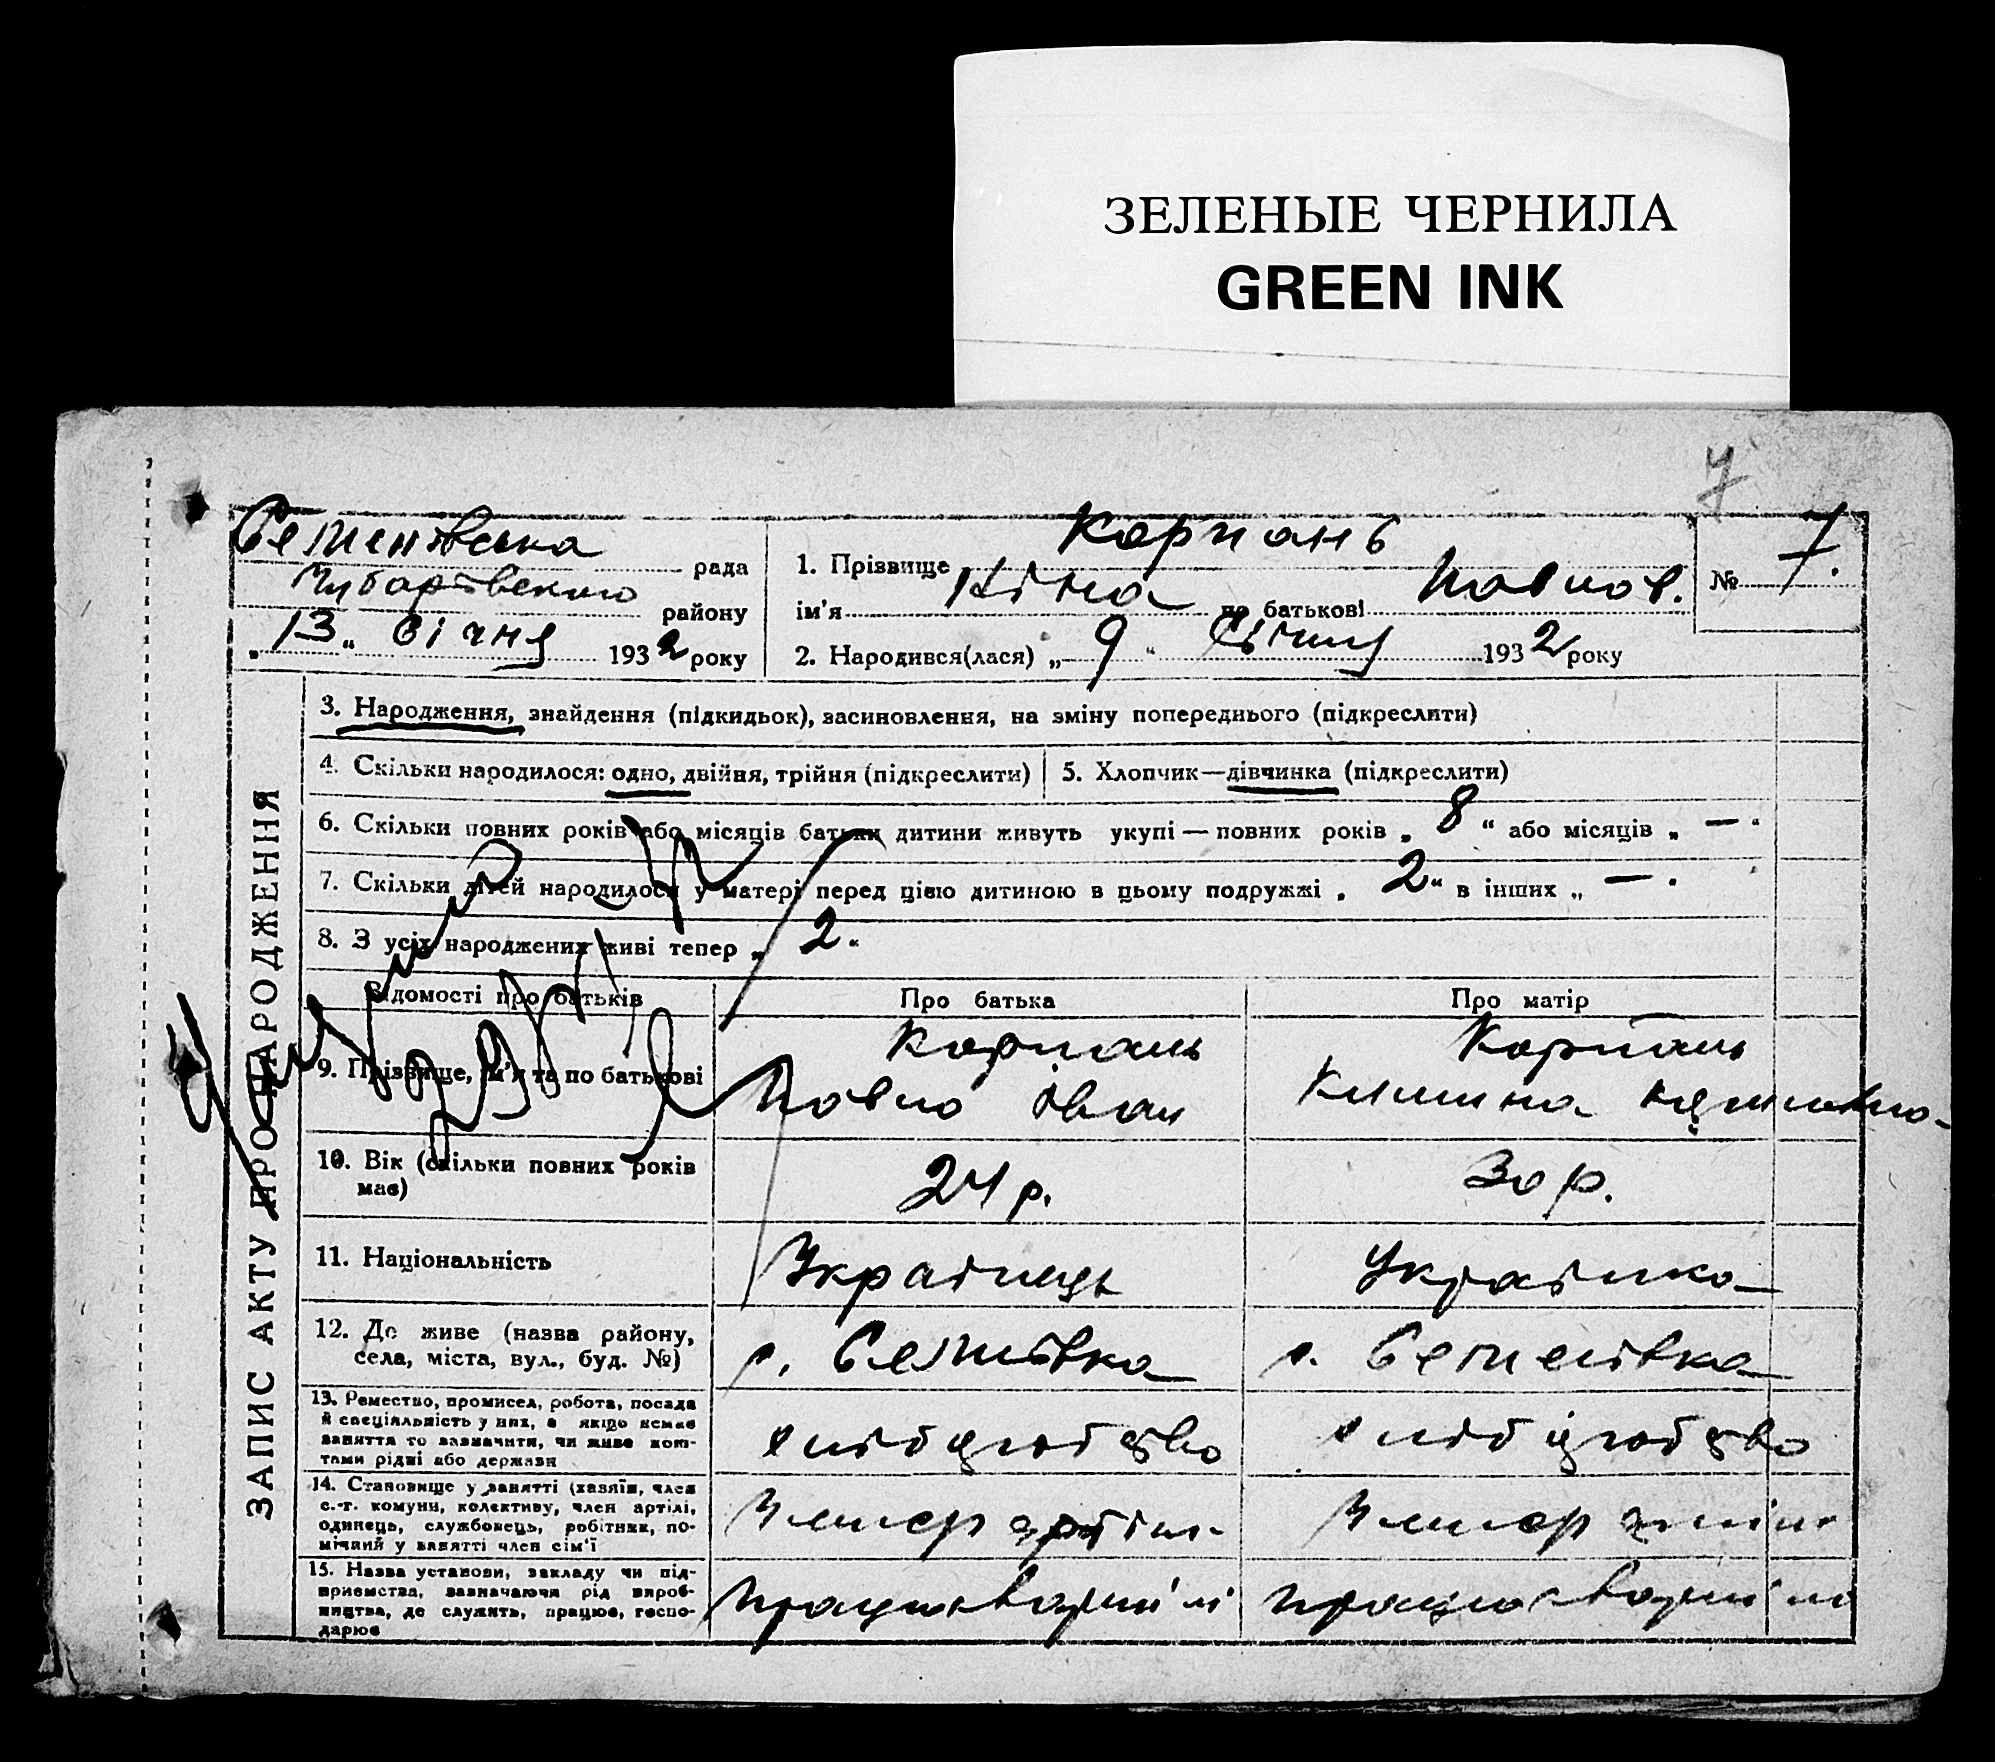 ЗЕЛЕНЫЕ ЧЕРНИЛА
GREEN INK
7
Семенівська рада
Чубарівського району
„13“ січня 1932 року
1. Прізвище Корпань
ім'я Ніна по батькові Павлов.
№ 7.
2. Народився(лася) „9“ Січня 1932 року
ЗАПИС АКТУ ПРО НАРОДЖЕННЯ
3. Народження, знайдення (підкидьок), засиновлення, на зміну попереднього (підкреслити)
4. Скільки народилося: одно, двійня, трійня (підкреслити)
5. Хлопчик—дівчинка (підкреслити)
6. Скільки повних років або місяців батьки дитини живуть укупі — повних років „8“ або місяців „—“
7. Скільки дітей народилося у матері перед цією дитиною в цьому подружжі „2“ в інших „—“
8. З усіх народжених живі тепер „2“
Відомості про батьків
Про батька
Про матір
9. Прізвище, ім'я та по батькові
Корпань
Павло Іван
Корпань
10. Вік (скільки повних років
має)
24 р.
30 р.
11. Національність
Українець
Українка
12. Де живе (назва району,
села, міста, вул., буд. №)
с. Семівка
с. Семенівка
13. Ремество, промисел, робота, посада
й спеціяльність у них, а якщо немає
заняття то зазначити, чи живе кош-
тами рідні або держави
хліборобство
хліборобство
14. Становище у занятті (хазяїн, член
с.-г. комуни, колективу, член артілі,
одинець, службовець, робітник, по-
мічний у занятті член сім'ї
Член артіли
Член артіли
15. Назва установи, закладу чи під-
приємства, зазначаючи рід вироб-
ництва, де служить, працює, госпо-
дарює
працює в артілі
працює в артілі